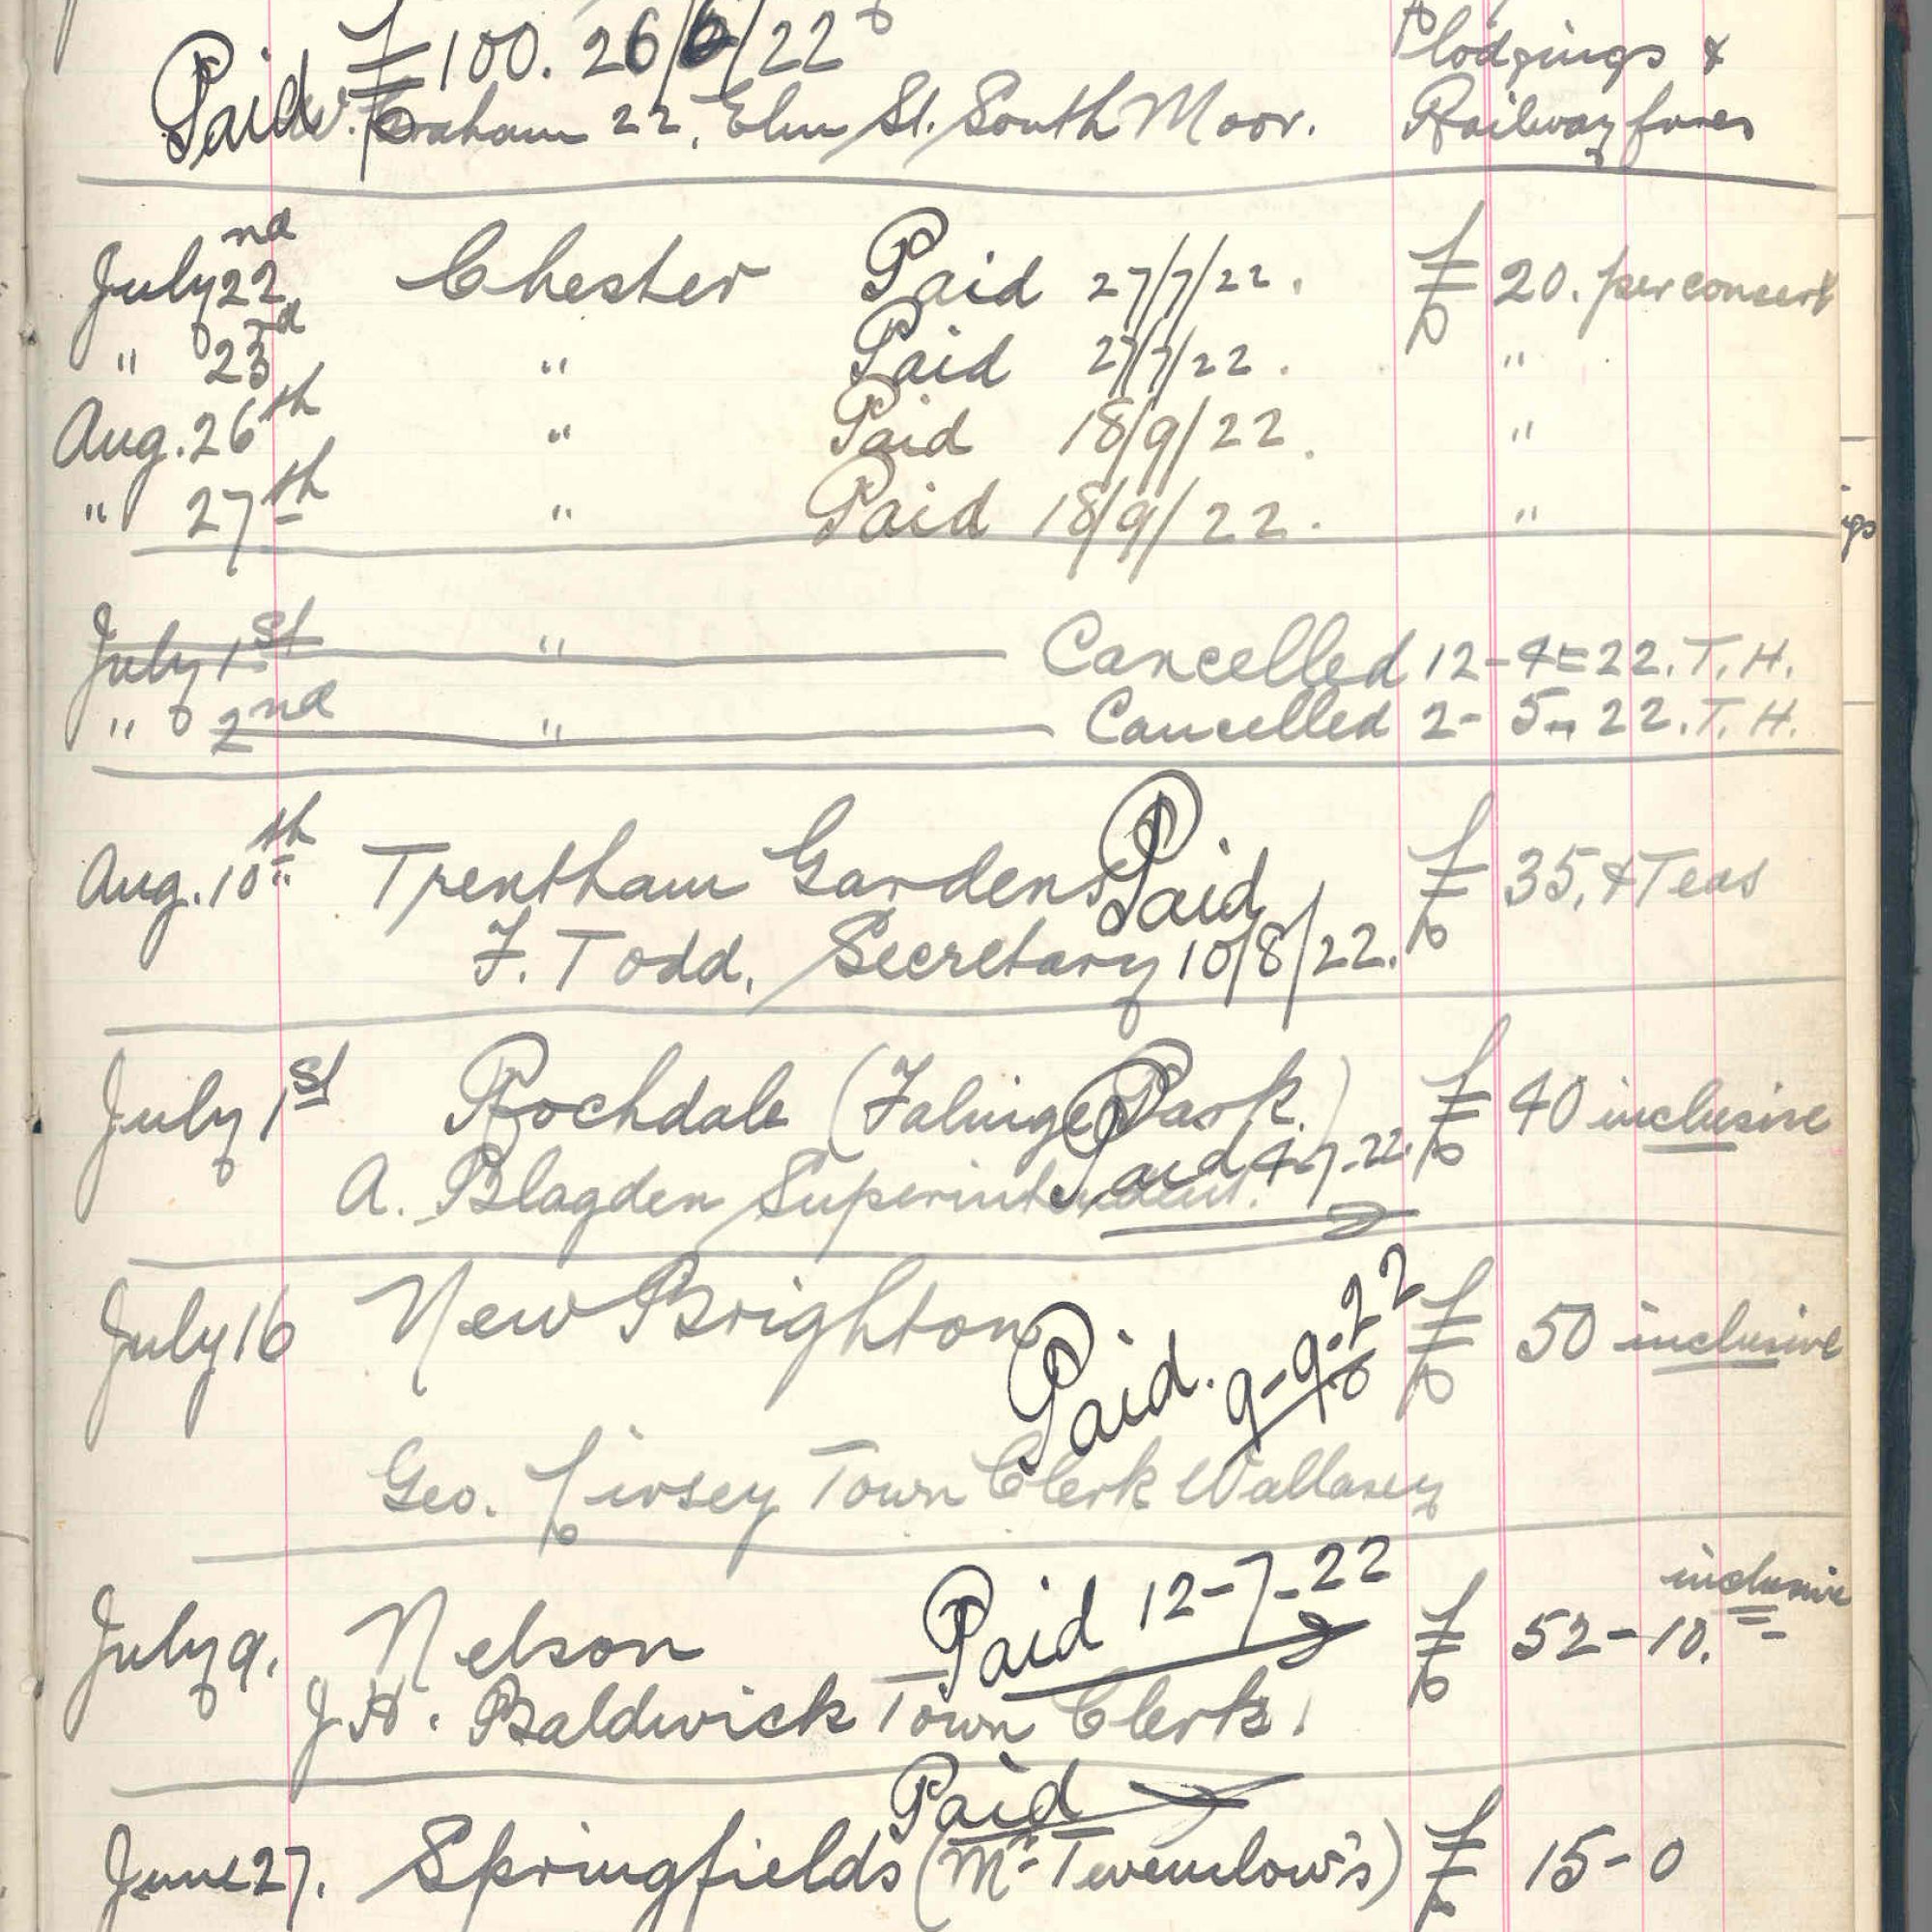 Paid £100. 26/6/22
lodgings &
W. Graham 22, Elm St. South Moor. Railway fares
July 22nd Chester Paid 27/7/22. £ 20. per concert
" 23rd " Paid 27/7/22. "
Aug. 26th " Paid 18/9/22. "
" 27th " Paid 18/9/22. "
July 1st " Cancelled 12-4-22. T. H.
" 2nd " Cancelled 2-5-22. T. H.
Aug. 10th Trentham Gardens Paid £ 35, & Teas
F. Todd, Secretary 10/8/22.
July 1st Rochdale (Falinge Park.) £ 40 inclusive
A. Blagden Superintendent. Paid 4-7-22.
July 16 New Brighton Paid. 9-9-22 £ 50 inclusive
Geo. Livsey Town Clerk Wallasey
inclusive
July 9. Nelson Paid 12-7-22 £ 52-10.
J. H. Baldwick Town Clerk.
Paid
June 27. Springfields (Mr Twemlow's) £ 15-0